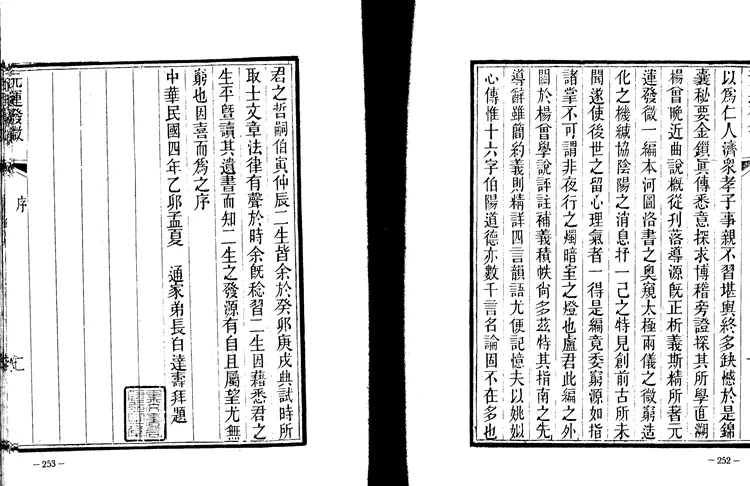 以為仁人濟衆孝子事親不習堪輿終多缺憾於是錦
囊秘要金鎖眞傳悉意探求博稽旁證探其所學直溯
楊曾晚近曲說概從刋落導源旣正析義斯精所著元
運發微一編本河圖洛書之奧窺太極兩儀之微窮造
化之機緘協陰陽之消息抒一己之特見創前古所未
聞遂使後世之留心理氣者一得是編竟委窮源如指
諸掌不可謂非夜行之燭暗室之燈也盧君此編之外
關於楊曾學說評註補義積帙尙多茲特其指南之先
導辭雖簡約義則精詳四言韻語尤便記憶夫以姚姒
心傳惟十六字伯陽道德亦數千言名論固不在多也
－252－
君之哲嗣伯寅仲辰二生皆余於癸卯庚戌典試時所
取士文章法律有聲於時余旣稔習二生因藉悉君之
生平曁讀其遺書而知二生之發源有自且屬望尤無
窮也因喜而爲之序
中華民國四年乙卯孟夏　通家弟長白達壽拜題
元運發微
序
－253－